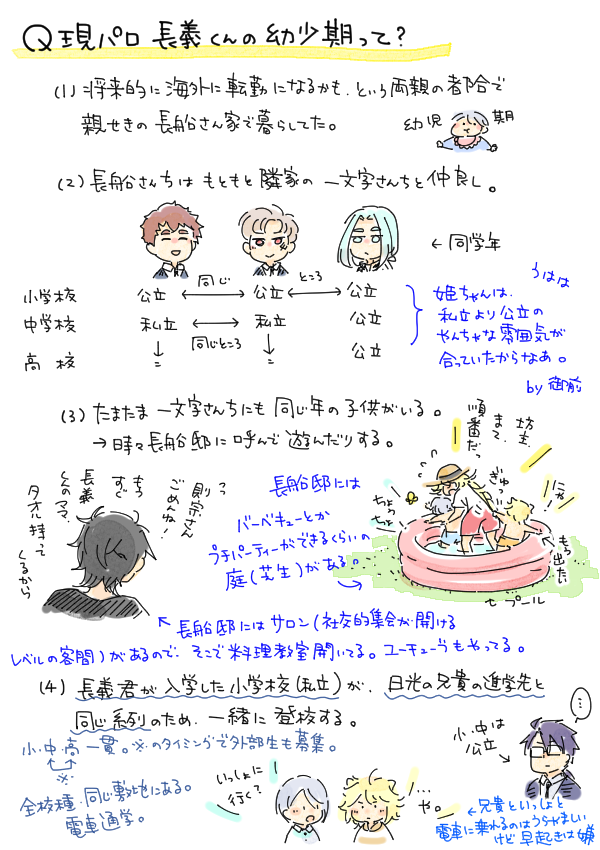 Q 現パロ 長義くんの幼少期って?
(1) 将来的に海外に転勤になるかも、という両親の都合で
親せきの長船さん家で暮らしてた。
幼児期
(2) 長船さんちはもともと隣家の一文字さんちと仲良し。
← 同学年
小学校 公立 ←同じ→ 公立 ←ところ→ 公立
中学校 私立 ←同じところ→ 私立 公立
高校 〃 〃 公立
うはは
姫ちゃんは、
私立より公立の
やんちゃな雰囲気が
合っていたからなあ。
by 御前
(3) たまたま一文字さんちにも同じ年の子供がいる。
→ 時々長船邸に呼んで遊んだりする。
坊主、
まて、
順番だっ
ぎゅっ
にゃ!
ちょうちょ
もう出たい
プール
っっ
則宗さん
ごめんね!
もうすぐ
長義くんのママ、
タオル持って
くるから
長船邸には
バーベキューとか
プチパーティーができるくらいの
庭(芝生)がある。
長船邸にはサロン(社交的集会が開ける
レベルの客間)があるので、そこで料理教室開いてる。ユーチューブもやってる。
(4) 長義君が入学した小学校(私立)が、日光の兄貴の進学先と
同じ系列のため、一緒に登校する。
小・中・高一貫。※のタイミングで外部生も募集。
※
全校種、同じ敷地にある。
電車通学。
いっしょに
行くて?
…や。
…
小・中は
公立
← 兄貴といっしょと
電車に乗れるのはうらやましい
けど早起きは嫌